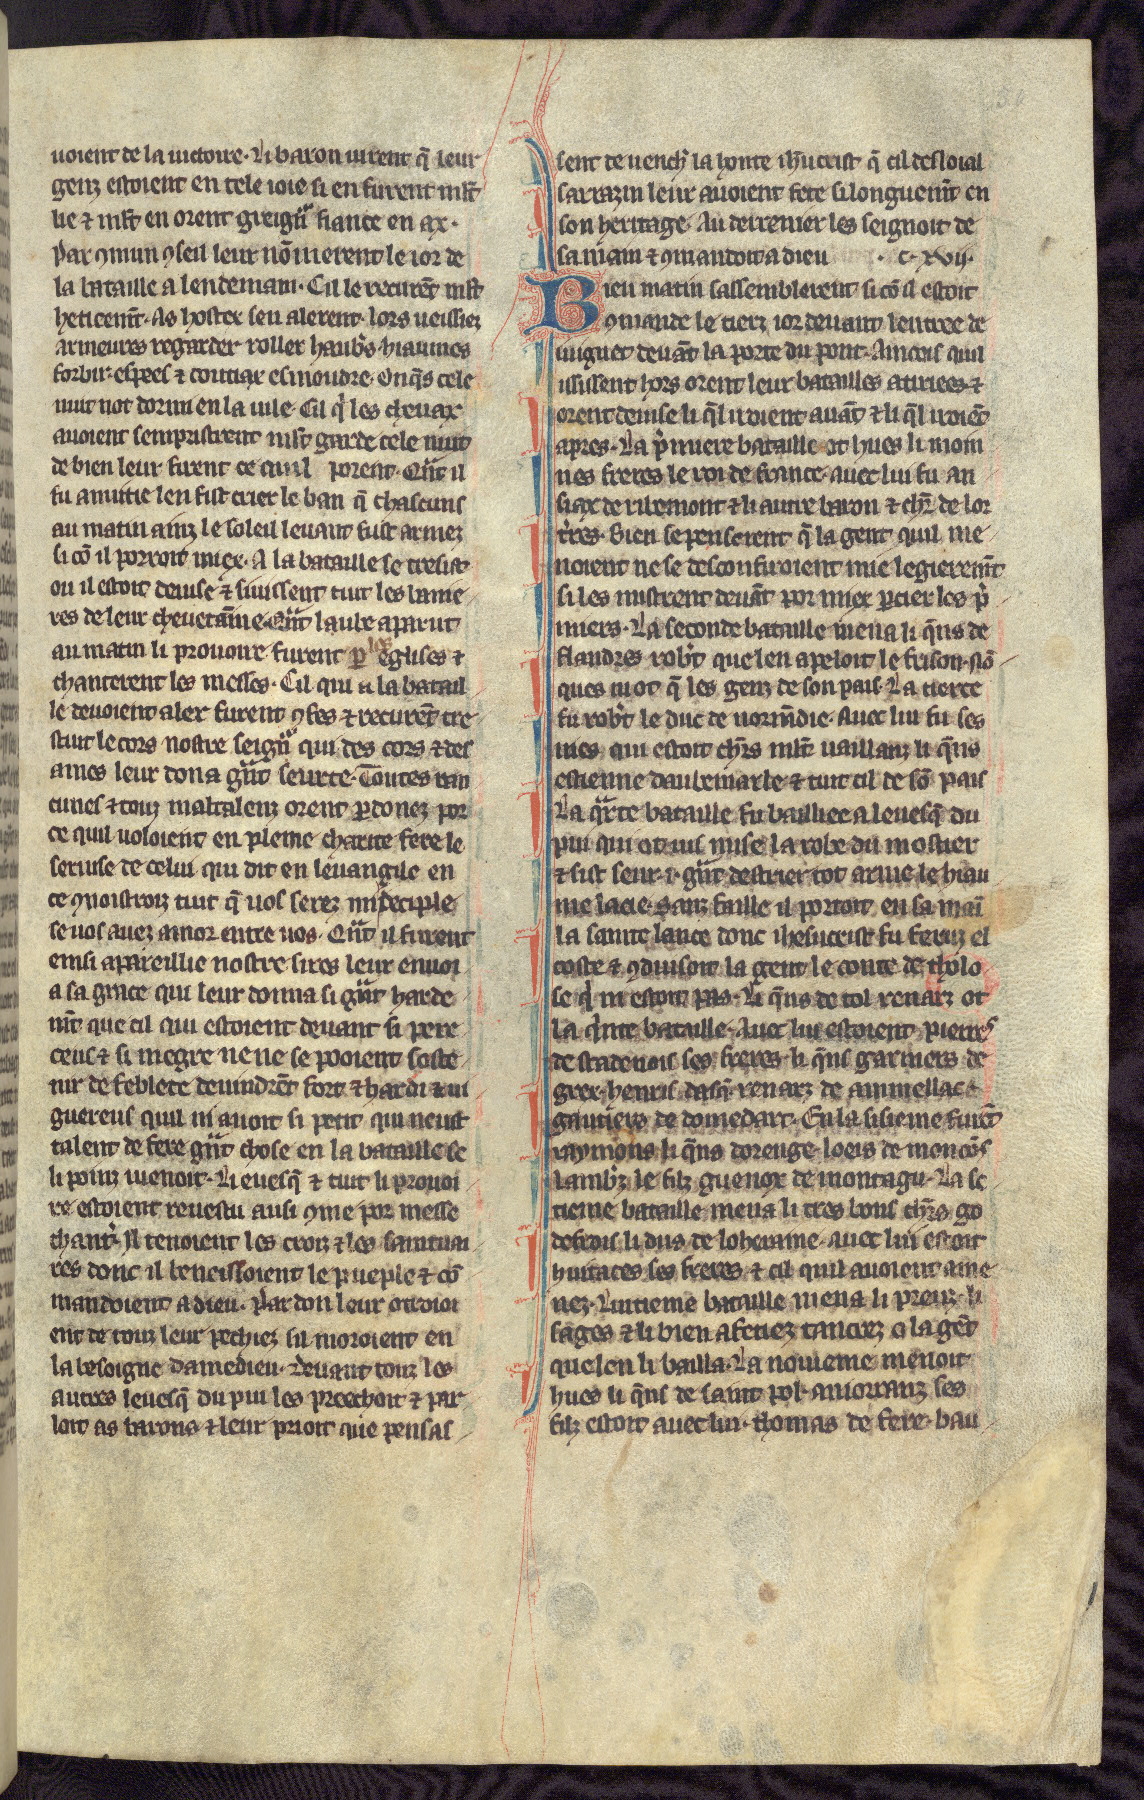 uoient de la uictoire. Li baron uirent q̄ leur
genz estoient en tele ioie si en furent ml̄t
lie ⁊ ml̄t en orent greigñ fiance en ax.
Par ꝯmun ꝯseil leur nōmerent le ior de
la bataille a lendemain. Cil le recurēt ml̄t
heticemt̄. As hostex sen alerent. lors ueissiez
armeures regarder roller haub̄s hiaumes
forbir. espees ⁊ coutiax esmoudre. Onq̄s cele
nuit not dormi en la uile. Cil q̇ les cheuax
auoient sempristrent ml̄t garde cele nuit
de bien leur furent ce quil porent. Qn̄t il
fu anuitie len fist crier le ban q̄ chascuns
au matin ainz le soleil leuant fust armez
si cō il porroit miex. A la bataille se tresist
ou il estoit deuise ⁊ siuissent tuit les banie
res de leur cheuetaine. Qn̄t laube aparut
au matin li prouoire furent ꝑ les eglises ⁊
chanterent les messes. Cil qui a la batail
le deuoient aler furent ꝯfes ⁊ recurēt tre
stuit le cors nostre seigñ qui des cors ⁊ des
ames leur dona gn̄t seurte. Toutes ran
cunes ⁊ touz maltalenz orent ꝑdonez por
ce quil uoloient en pleine charite fere le
seruise de celui qui dit en leuangile en
ce ꝯnoistroiz tuit q̄ uos serez mi deciple
se uos auez amor entre uos. Qn̄t il furent
einsi apareillie nostre sires leur enuoi
a sa grace qui leur donna si gn̄t harde
mt̄ que cil qui estoient deuant si pere
ceus ⁊ si megre ne ne se pooient soste
nir de feblece deuindrēt fort ⁊ hardi ⁊ ui
guereus quil ni auoit si petit qui neust
talent de fere gn̄t chose en la bataille se
li poinz iuenoit. Li euesq̄ ⁊ tuit li prouoi
re estoient reuestu ausi ꝯme por messe
chant̄. Il tenoient les croiz ⁊ les saintuai
res donc il beneissoient le pueple ⁊ cō
mandoient a dieu. Pardon leur otroioi
ent de touz leur pechiez sil moroient en
la besoigne damedieu. Deuant touz les
autres leuesq̄ du pui les preechoit ⁊ par
loit as barons ⁊ leur prioit que pensas
sent de uench̄ la honte ih̄ucrist q̄ cil desloial
sarrazin leur auoient fete si longuemt̄ en
son heritage. Au derrenier les seignoit de
sa main ⁊ ꝯmandoit a dieu .c. xvij.
Bien matin sassemblerent si cō il estoit
ꝯmande le tierz ior deuant lentree de
iuignet deuāt la porte du pont. Ainceis quil
ississent hors orent leur batailles atirees ⁊
orent deuise li q̄l iroient auāt ⁊ li q̄l iroiēt
apres. La p̄miere bataille ot hues li moin
nes freres le roi de france. auec lui fu an
siax de ribemont ⁊ li autre baron ⁊ chr̄ de lor
tr̄res. Bien se penserent q̄ la gent quil me
noient ne se desconfiroient mie legieremt̄
si les mistrent deuāt por miex ꝑcier les p̄
miers. La seconde bataille mena li q̄ns de
flandres rob̄t que len apeloit le frison. Nō
ques ni ot q̄ les genz de son pais. La tierce
fu rob̄t le duc de normādie. auec lui fu ses
nies qui estoit chr̄s ml̄t uaillanz li q̄ns
estienne daubemarle ⁊ tuit cil de sō pais
La q̄rte bataille fu bailliee a leuesq̄ du
pui qui ot ius mise la robe du mostier
⁊ sist seur .i. gn̄t destrier tot arme le hiau
me lacie. Sanz faille il portoit en sa maī
la sainte lance donc ihesucrist fu feruz el
coste ⁊ ꝯduisoit la gent le conte de tholo
se q̇ ni estoit pas. Li q̄ns de tol renarz ot
la q̇nte bataille. Auec lui estoient pierres
de stadenois ses freres. li q̄ns garniers de
grez. henris dasq̄ renarz de ammellac
gautiers de domedart. En la sisieme furēt
raymons li q̄ns dorenge. loeis de moncōs
lamb̄z le filz guenox de montagu. La se
tieme bataille mena li tres bons chr̄s go
defrois li dus de loheraine. auec lui estoit
huitaces ses freres ⁊ cil quil auoient ame
nez. Luitieme bataille mena li preuz. li
sages ⁊ li bien afetiez tancrez o la gēt
que len li bailla. La nouieme menoit
hues li q̄ns de saint pol. aniorranz ses
filz estoit auec lui. thomas de fere. bau